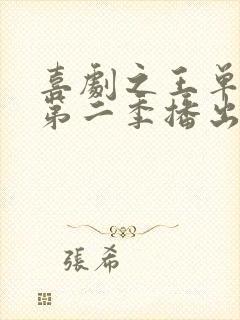 喜劇之王單
第二季播出
張希